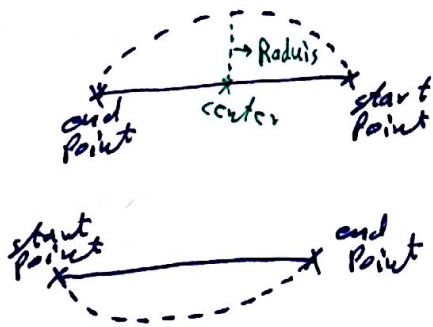 → Raduis
end
Point
center
start
Point
start
Point
end
Point